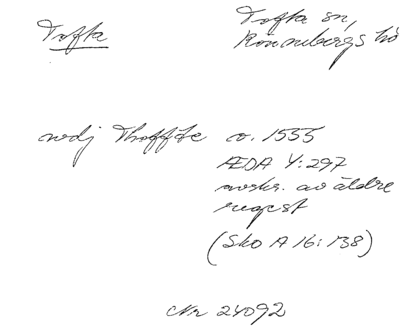 Tofta
Tofta sn,
Rönnebergs hd
wdj Thoffte o. 1555
ÆDA 4:297
avskr. av äldre
regest
(Sko A 16:138)
Nr 24092